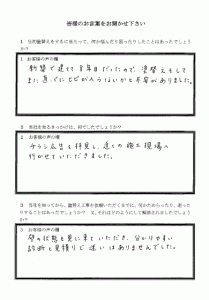 皆様のお言葉をお聞かせ下さい
1 当社塗替えをするに当たって、何か悩んだり困った?したことはあったでしょうか?
1 お客様の声の欄
新築で建てて8年目だったので、塗替えをして
また直ぐにヒビが入らないかと不安がありました。
2 当社を知るきっかけは、何でしたでしょうか?
2 お客様の声の欄
チラシ広告を拝見し、近くの施工現場へ
行かせていただきました。
3 当社を知ってから、塗替え工事を依頼いただくまでに、何かためらったり、迷ったりすることはあったでしょうか? 又、それはどのようにして解消されましたでしょうか?
3 お客様の声の欄
壁の状態を見に来ていただき、分かりやすい
診断と見積りで迷いはありませんでした。